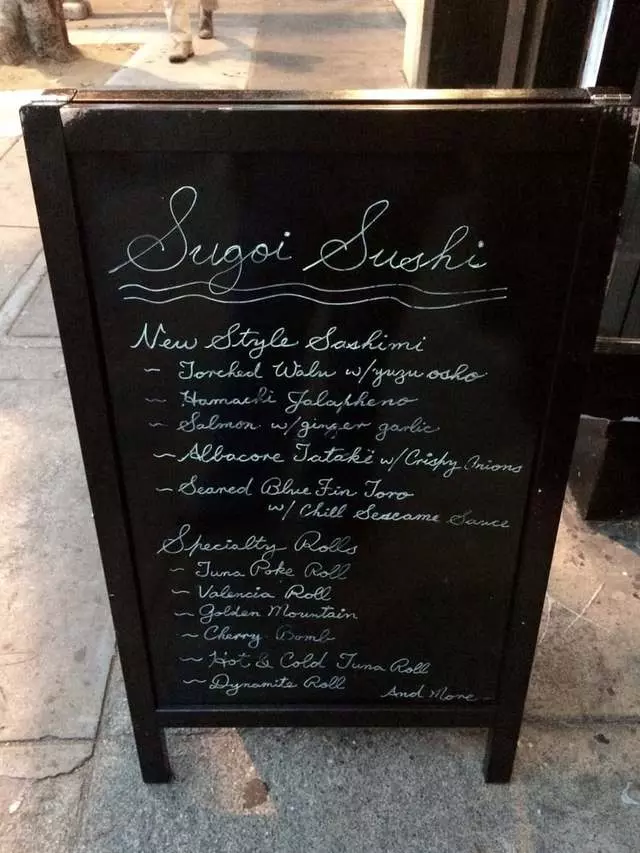 Sugoi Sushi
New Style Sashimi
~ Torched Walu w/yuzu osho
~ Hamachi Jalapheno
~ Salmon w/ginger garlic
~ Albacore Tataki w/ Crispy Onions
~ Seared Blue Fin Toro
w/ Chill Sescame Sauce
Specialty Rolls
~ Tuna Poke Roll
~ Valencia Roll
~ Golden Mountain
~ Cherry Bomb
~ Hot & Cold Tuna Roll
~ Dynamite Roll
And More~